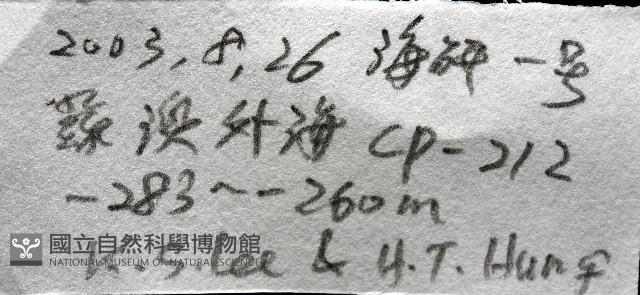 2003.8.26 海研一号
蘇澳外海 CP-212
-283~-260m
國立自然科學博物館
NATIONAL MUSEUM OF NATURAL SCIENCE
Lee & H.T. Hung